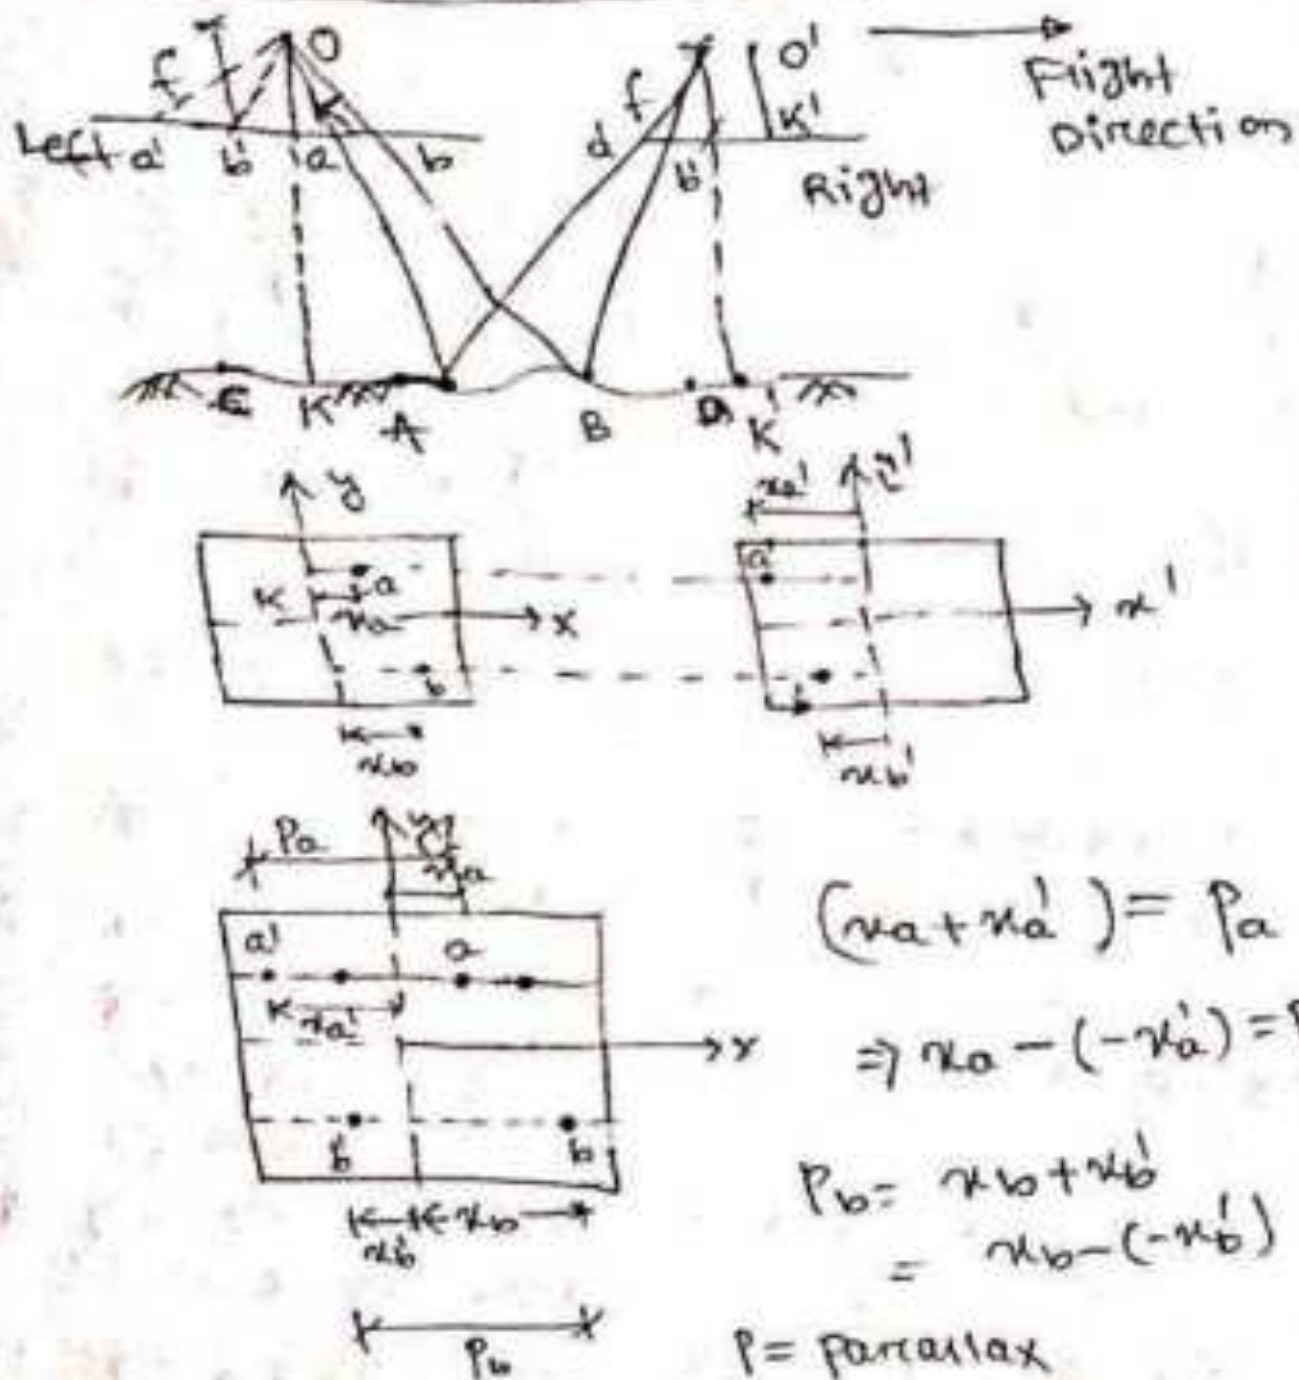 O
f
Left a' b' a b
O'
f
K'
d
b'
Right
Flight
Direction
K A B K'
y
a
K
xa
X
b
xb
xa'
a'
x'
xb'
Pa
xa
a' a
xa'
b' b
xb' xb
Pb
(xa + xa') = Pa
⇒ xa - (-xa') = P
Pb = xb + xb'
= xb - (-xb')
P = Parallax